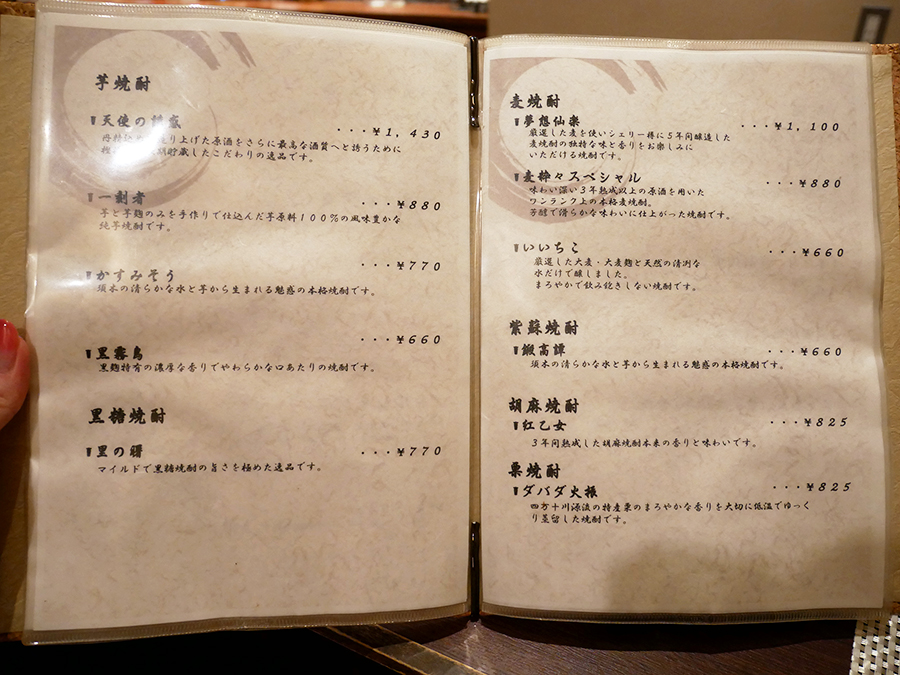 芋焼酎
天使の誘惑
・・・¥1,430
り上げた原酒をさらに最高な酒質へと誘うために
貯蔵したこだわりの逸品です。
一刻者
・・・¥880
芋と芋麹のみを手作りで仕込んだ芋原料100%の風味豊かな
純芋焼酎です。
・・・¥770
かすみそう
須木の清らかな水と芋から生まれる魅惑の本格焼酎です。
・・・¥660
黒霧島
黒麹特有の濃厚な香りでやわらかな口あたりの焼酎です。
黒糖焼酎
里の曙
・・・¥770
マイルドで黒糖焼酎の旨さを極めた逸品です。
麦焼酎
夢想仙楽
・・・¥1,100
厳選した麦を使いシェリー樽に5年間醸造した
麦焼酎の独特な味と香りをお楽しみに
いただける焼酎です。
麦粋々スペシャル
・・・¥880
味わい深い3年熟成以上の原酒を用いた
ワンランク上の本格麦焼酎。
芳醇で滑らかな味わいに仕上がった焼酎です。
いいちこ
・・・¥660
厳選した大麦・大麦麹と天然の清冽な
水だけで醸しました。
まろやかで飲み飽きしない焼酎です。
紫蘇焼酎
鍛高譚
・・・¥660
須木の清らかな水と芋から生まれる魅惑の本格焼酎です。
胡麻焼酎
紅乙女
・・・¥825
3年間熟成した胡麻焼酎本来の香りと味わいです。
栗焼酎
ダバダ火振
・・・¥825
四万十川源流の特産栗のまろやかな香りを大切に低温でゆっく
り蒸留した焼酎です。